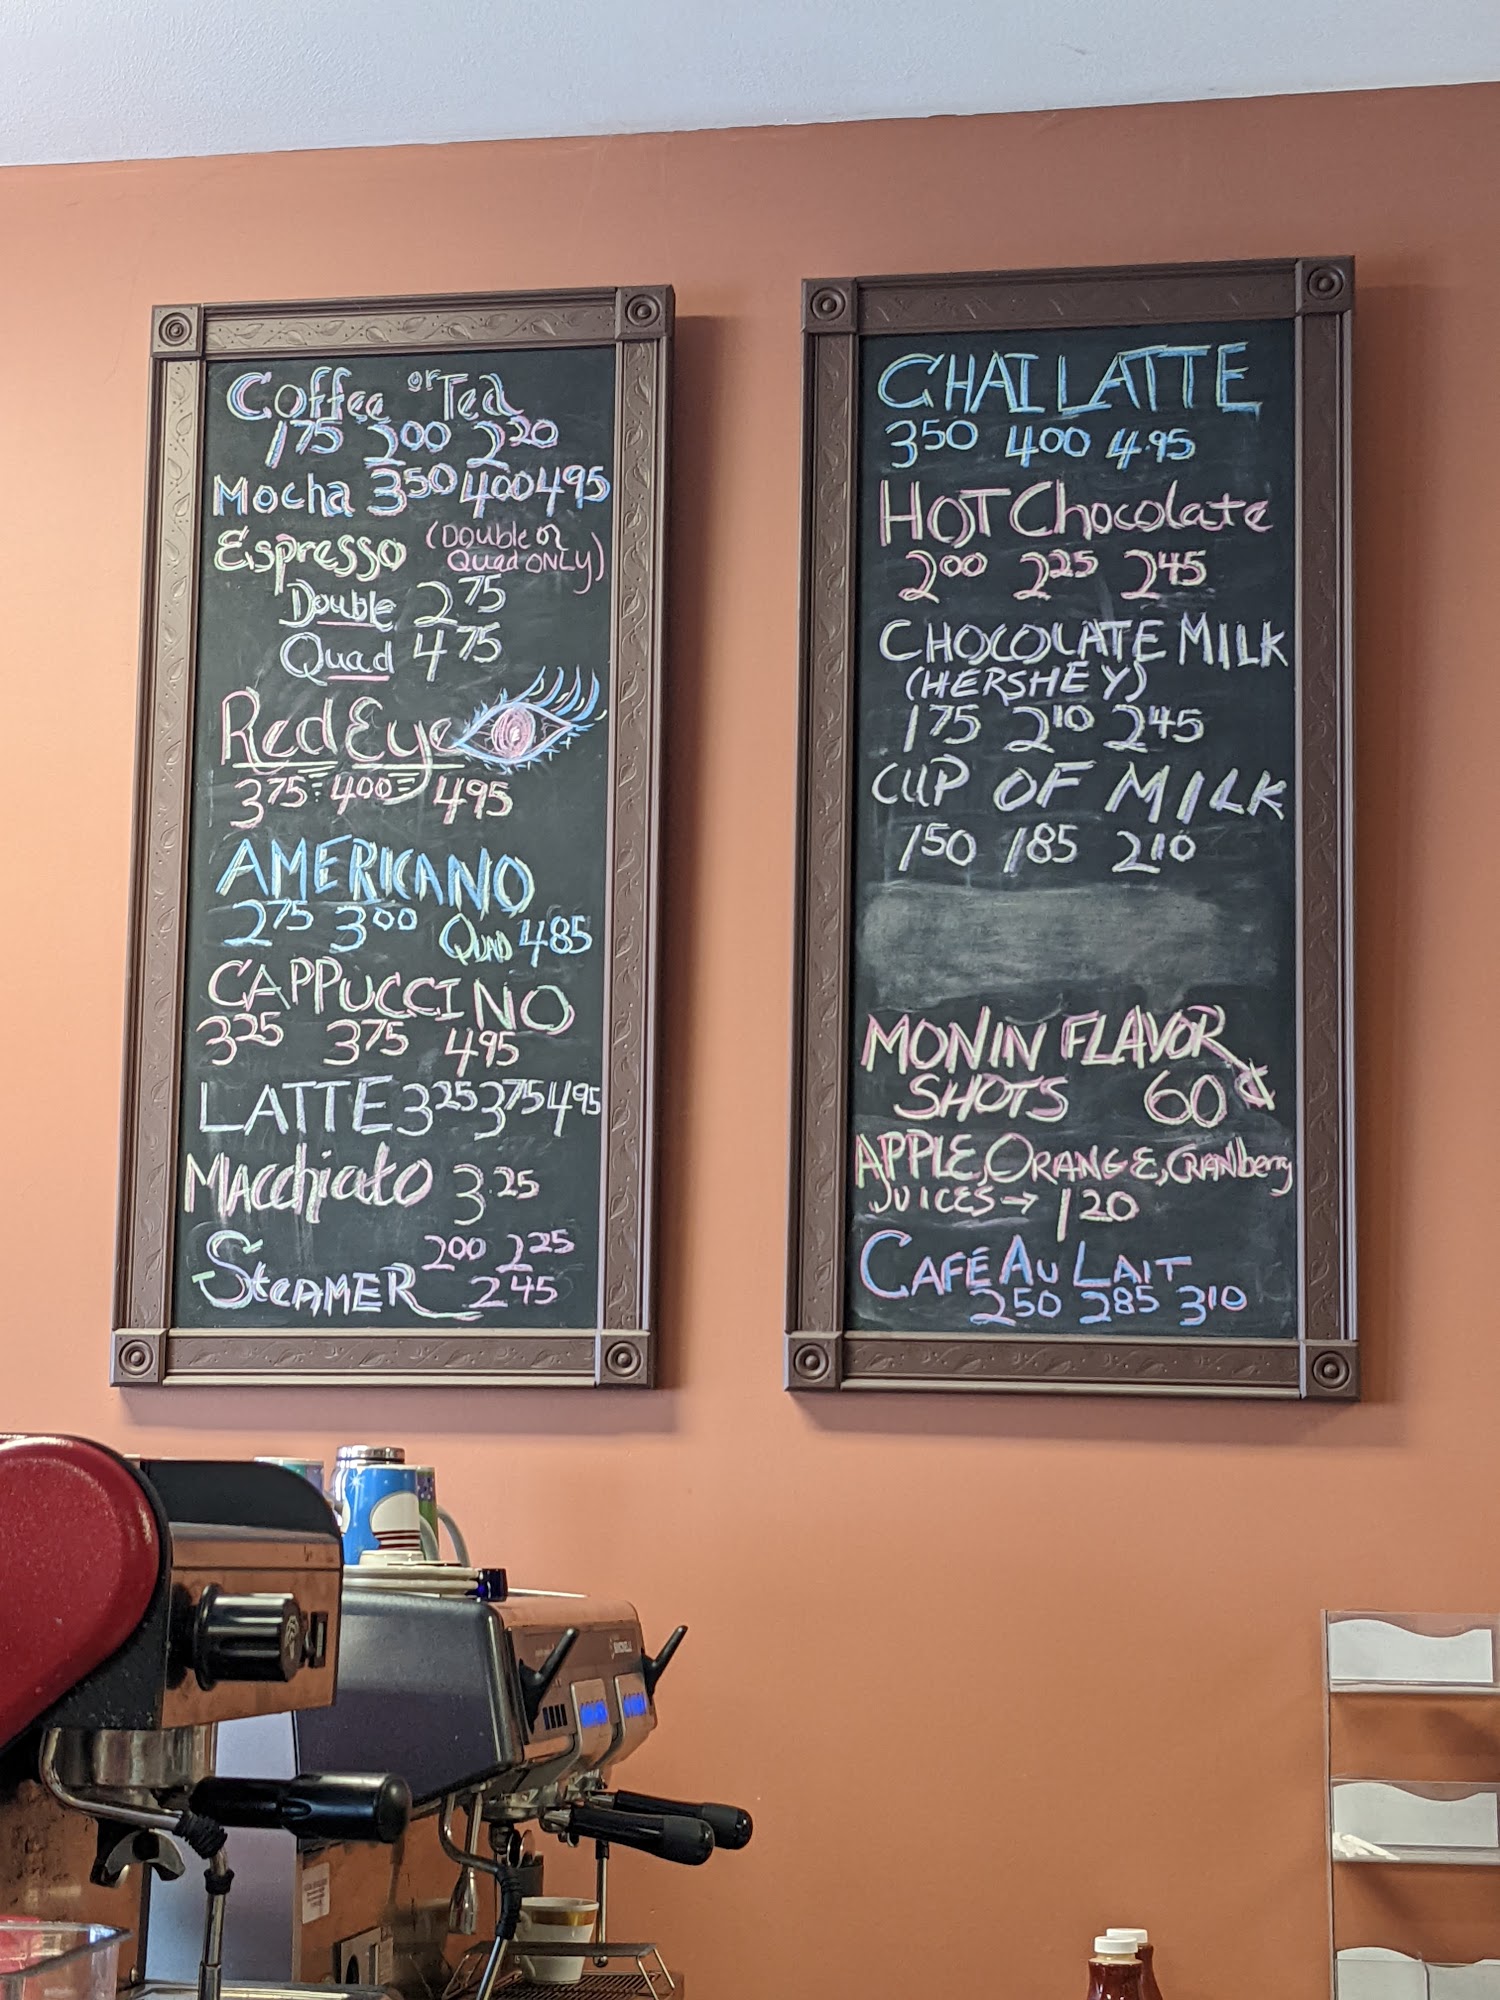 Coffee or Tea
175 200 220
Mocha 350 400 495
Espresso (Double or
Quad ONLY)
Double 275
Quad 475
Red Eye
375 400 495
AMERICANO
275 300 QUAD 485
CAPPUCCINO
325 375 495
LATTE 325 375 495
Macchiato 3.25
STEAMER 200 225
245
CHAI LATTE
350 400 4.95
HOT Chocolate
200 225 245
CHOCOLATE MILK
(HERSHEY)
175 210 245
CUP OF MILK
150 185 210
MONIN FLAVOR
SHOTS 60¢
APPLE, ORANGE, CRANberry
JUICES → 120
CAFÉ AU LAIT
250 285 310